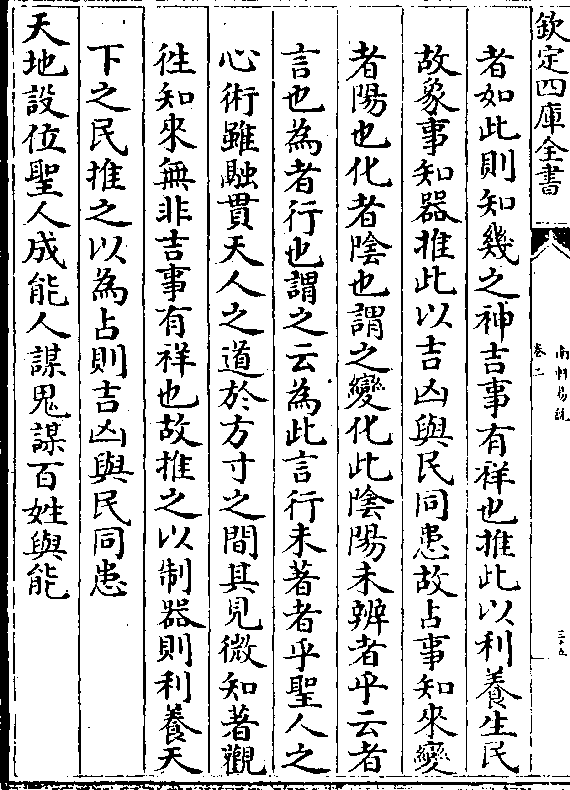 欽定四庫全書
南軒易説
卷二
三十五
者如此則知幾之神吉事有祥也推此以利養生民
故象事知器推此以吉凶與民同患故占事知來變
者陽也化者陰也謂之變化此陰陽未辨者乎云者
言也為者行也謂之云為此言行未著者乎聖人之
心術雖融貫天人之道於方寸之間其見微知著觀
徃知來無非吉事有祥也故推之以制器則利養天
下之民推之以為占則吉凶與民同患
天地設位聖人成能人謀鬼謀百姓與能